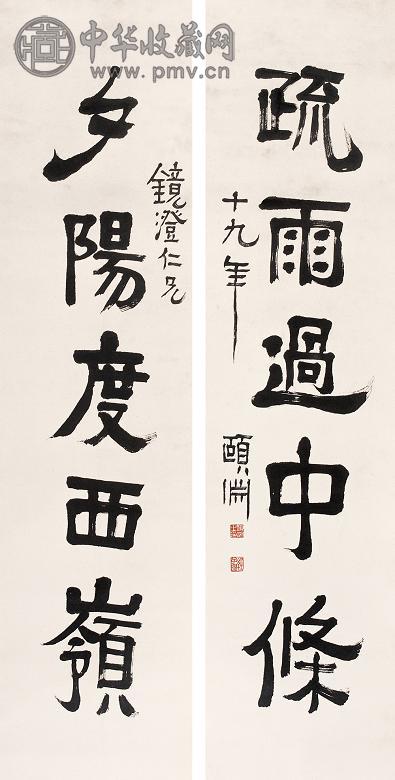 中华收藏网
www.pmv.cn
疏雨過中條
十九年
頤淵
夕陽度西嶺
鏡澄仁兄